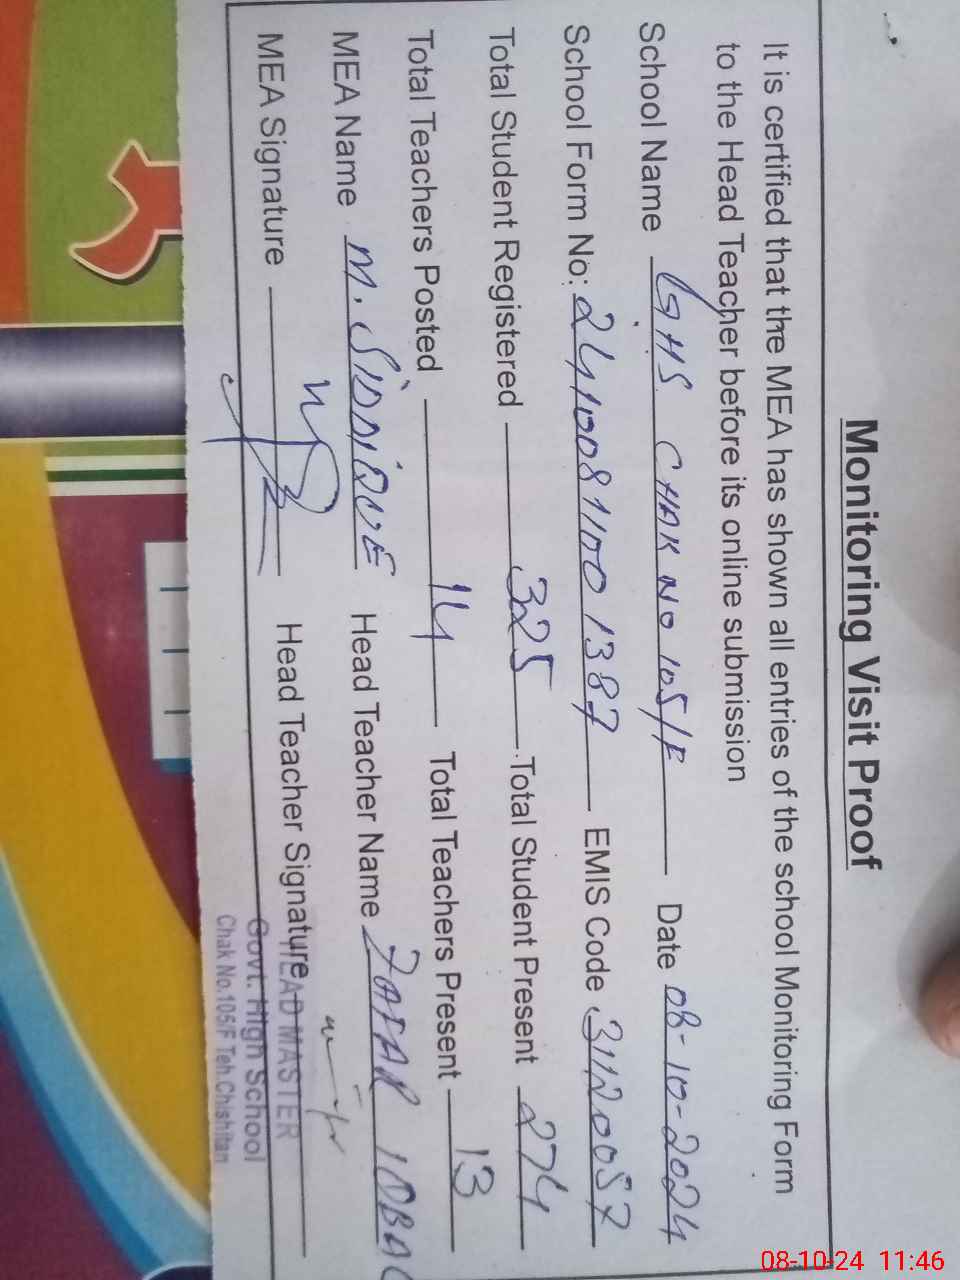 Monitoring Visit Proof
It is certified that the MEA has shown all entries of the school Monitoring Form
to the Head Teacher before its online submission
School Name GHS CHAK NO 105/F Date 08-10-2024
School Form No: 2410081100 1387 EMIS Code 31120057
Total Student Registered 325 Total Student Present 274
Total Teachers Posted 14 Total Teachers Present 13
MEA Name M. SIDDIQUE Head Teacher Name ZAFAR IQBA
MEA Signature Head Teacher Signature
HEAD MASTER
Govt. High School
Chak No.105/F Teh.Chishtian
08-10-24 11:46